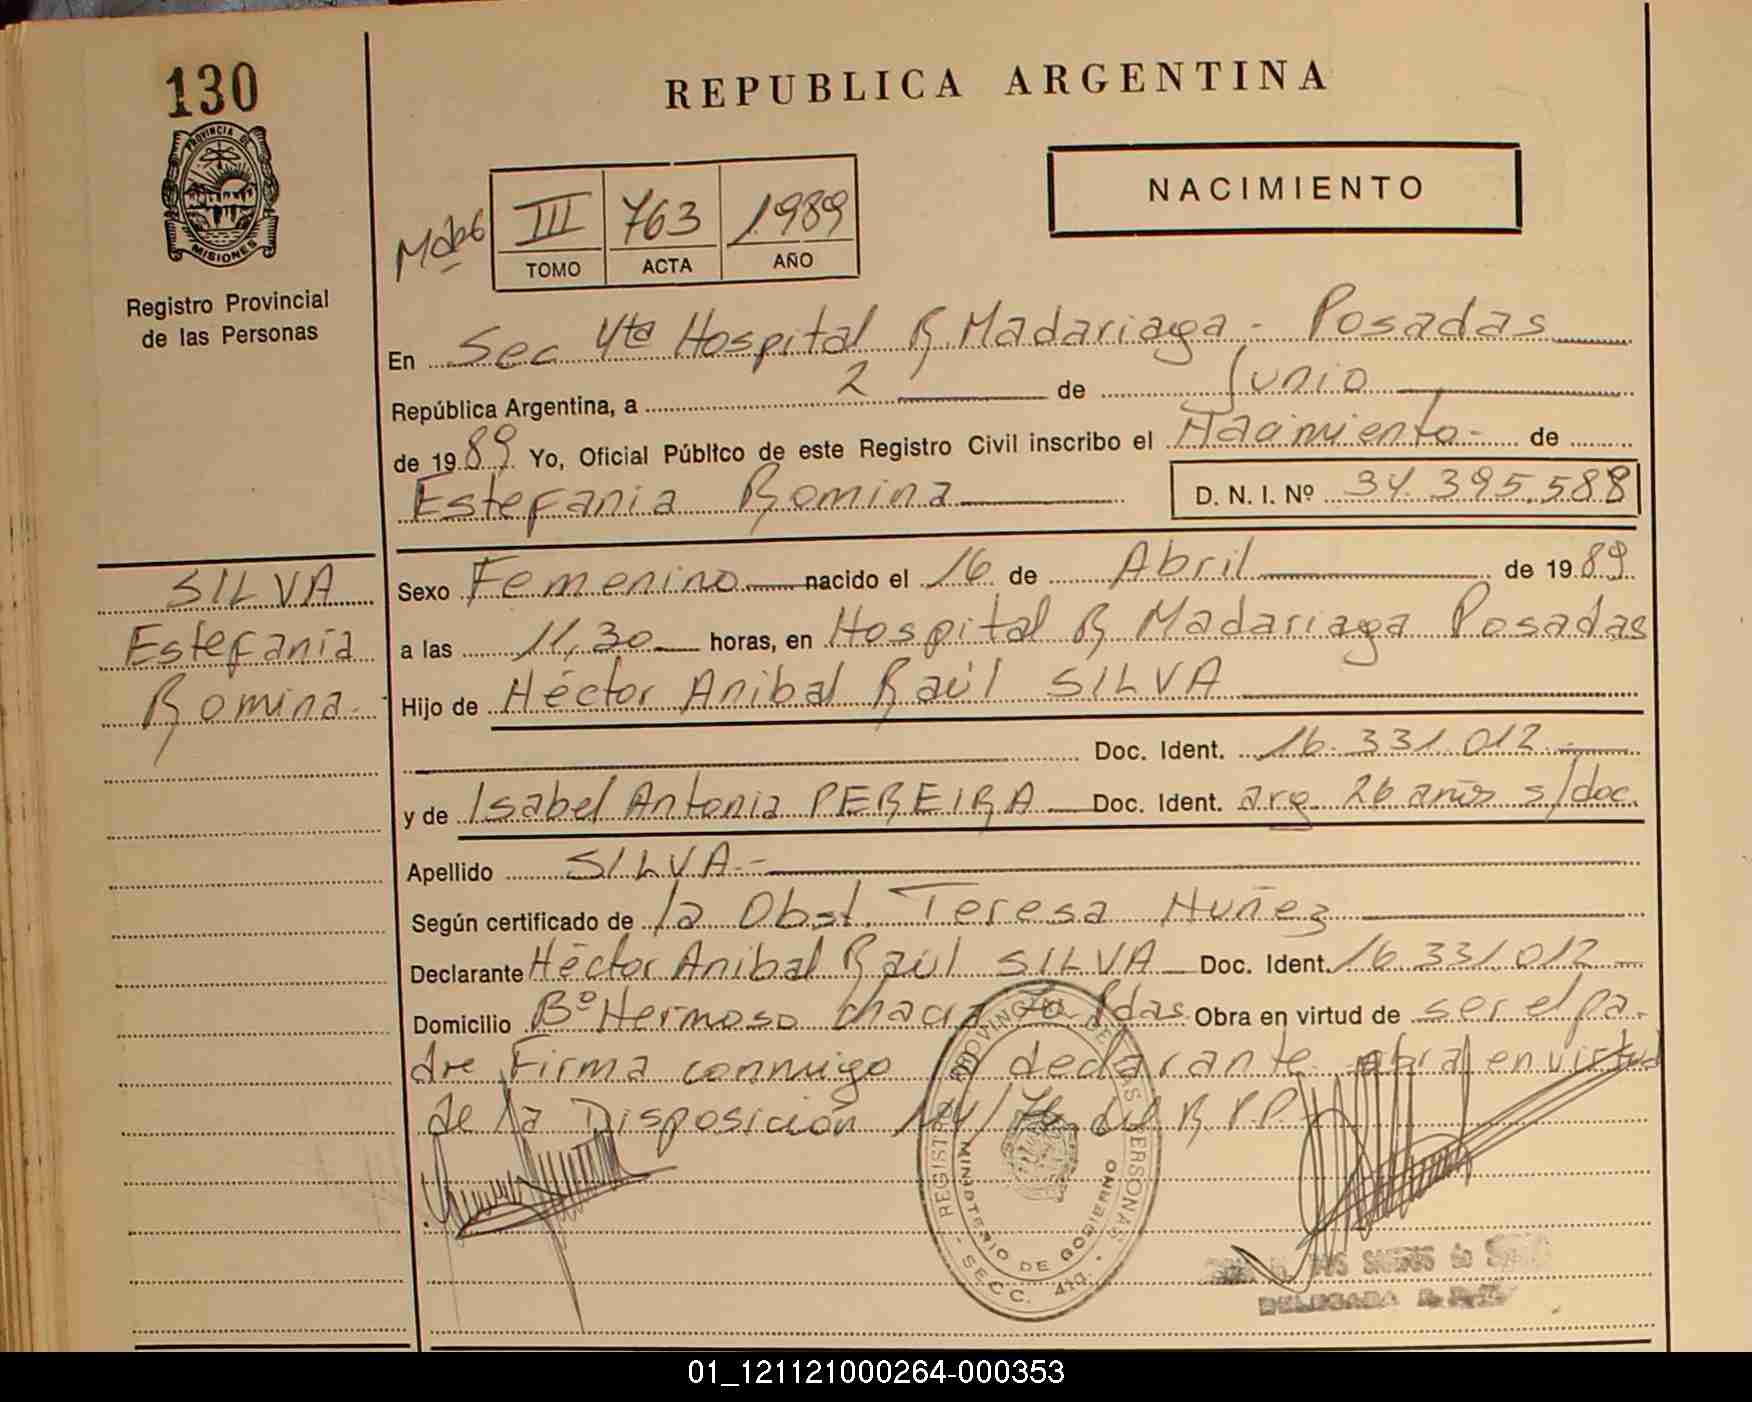 130
PROVINCIA DE
MISIONES
Registro Provincial
de las Personas
REPUBLICA ARGENTINA
III 763 1989
TOMO ACTA AÑO
NACIMIENTO
En Sec 4ta Hospital R. Madariaga - Posadas
República Argentina, a 2 de Junio
de 1989. Yo, Oficial Público de este Registro Civil inscribo el Nacimiento - de
Estefania Romina D. N. I. Nº 34.395.588
SILVA
Estefania
Romina.-
Sexo Femenino nacido el 16 de Abril de 1989
a las 11,30 horas, en Hospital R Madariaga Posadas
Hijo de Héctor Anibal Raúl SILVA
Doc. Ident. 16.331.012.-
y de Isabel Antonia PEREIRA Doc. Ident. arg 26 años s/doc.
Apellido SILVA.-
Según certificado de la Obst. Teresa Nuñez
Declarante Héctor Anibal Raúl SILVA Doc. Ident. 16.331.012
Domicilio Bº Hermoso chacra Pdas. Obra en virtud de ser el pa-
dre Firma conmigo declarante obra en virtud
de la Disposición del R.P.P.
REGISTRO PROVINCIAL DE LAS PERSONAS
MINISTERIO DE GOBIERNO
SECC. 4ta
DELEGADA
01_121121000264-000353